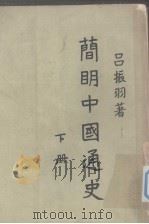 吕振羽著
簡明中國通史
下册